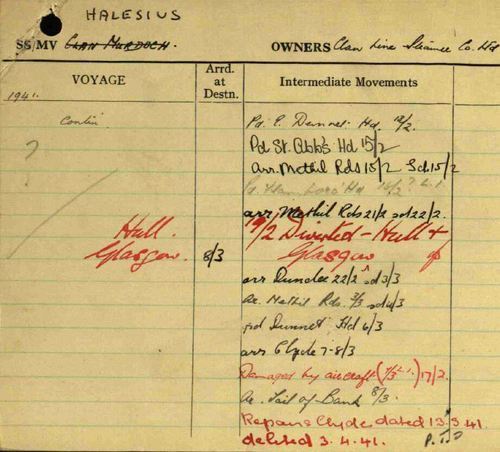 HALESIUS
SS/MV CLAN MURDOCH. OWNERS Clan Line Steamers Co. Ltd
VOYAGE Arrd. at Destn. Intermediate Movements
1941.
Contin
?
Pd. E. Dunnet Hd. 12/2.
Pd St. Abb's Hd 15/2
arr. Methil Rds 15/2 Sd. 15/2
Hd
arr. Methil Rds 21/2 sd 22/2.
Hull. 19/2 Diverted - Hull +
Glasgow. 8/3 Glasgow
arr Dundee 22/2 sd 3/3
Ar. Methil Rds. 3/3 sd 4/3
pd Dunnet Hd 6/3
arr Clyde 7-8/3
Damaged by aircraft 17/2.
Ar. Tail of Bank 8/3.
Repairs Clyde dated 13.3.41.
deleted 3.4.41. P.T.O